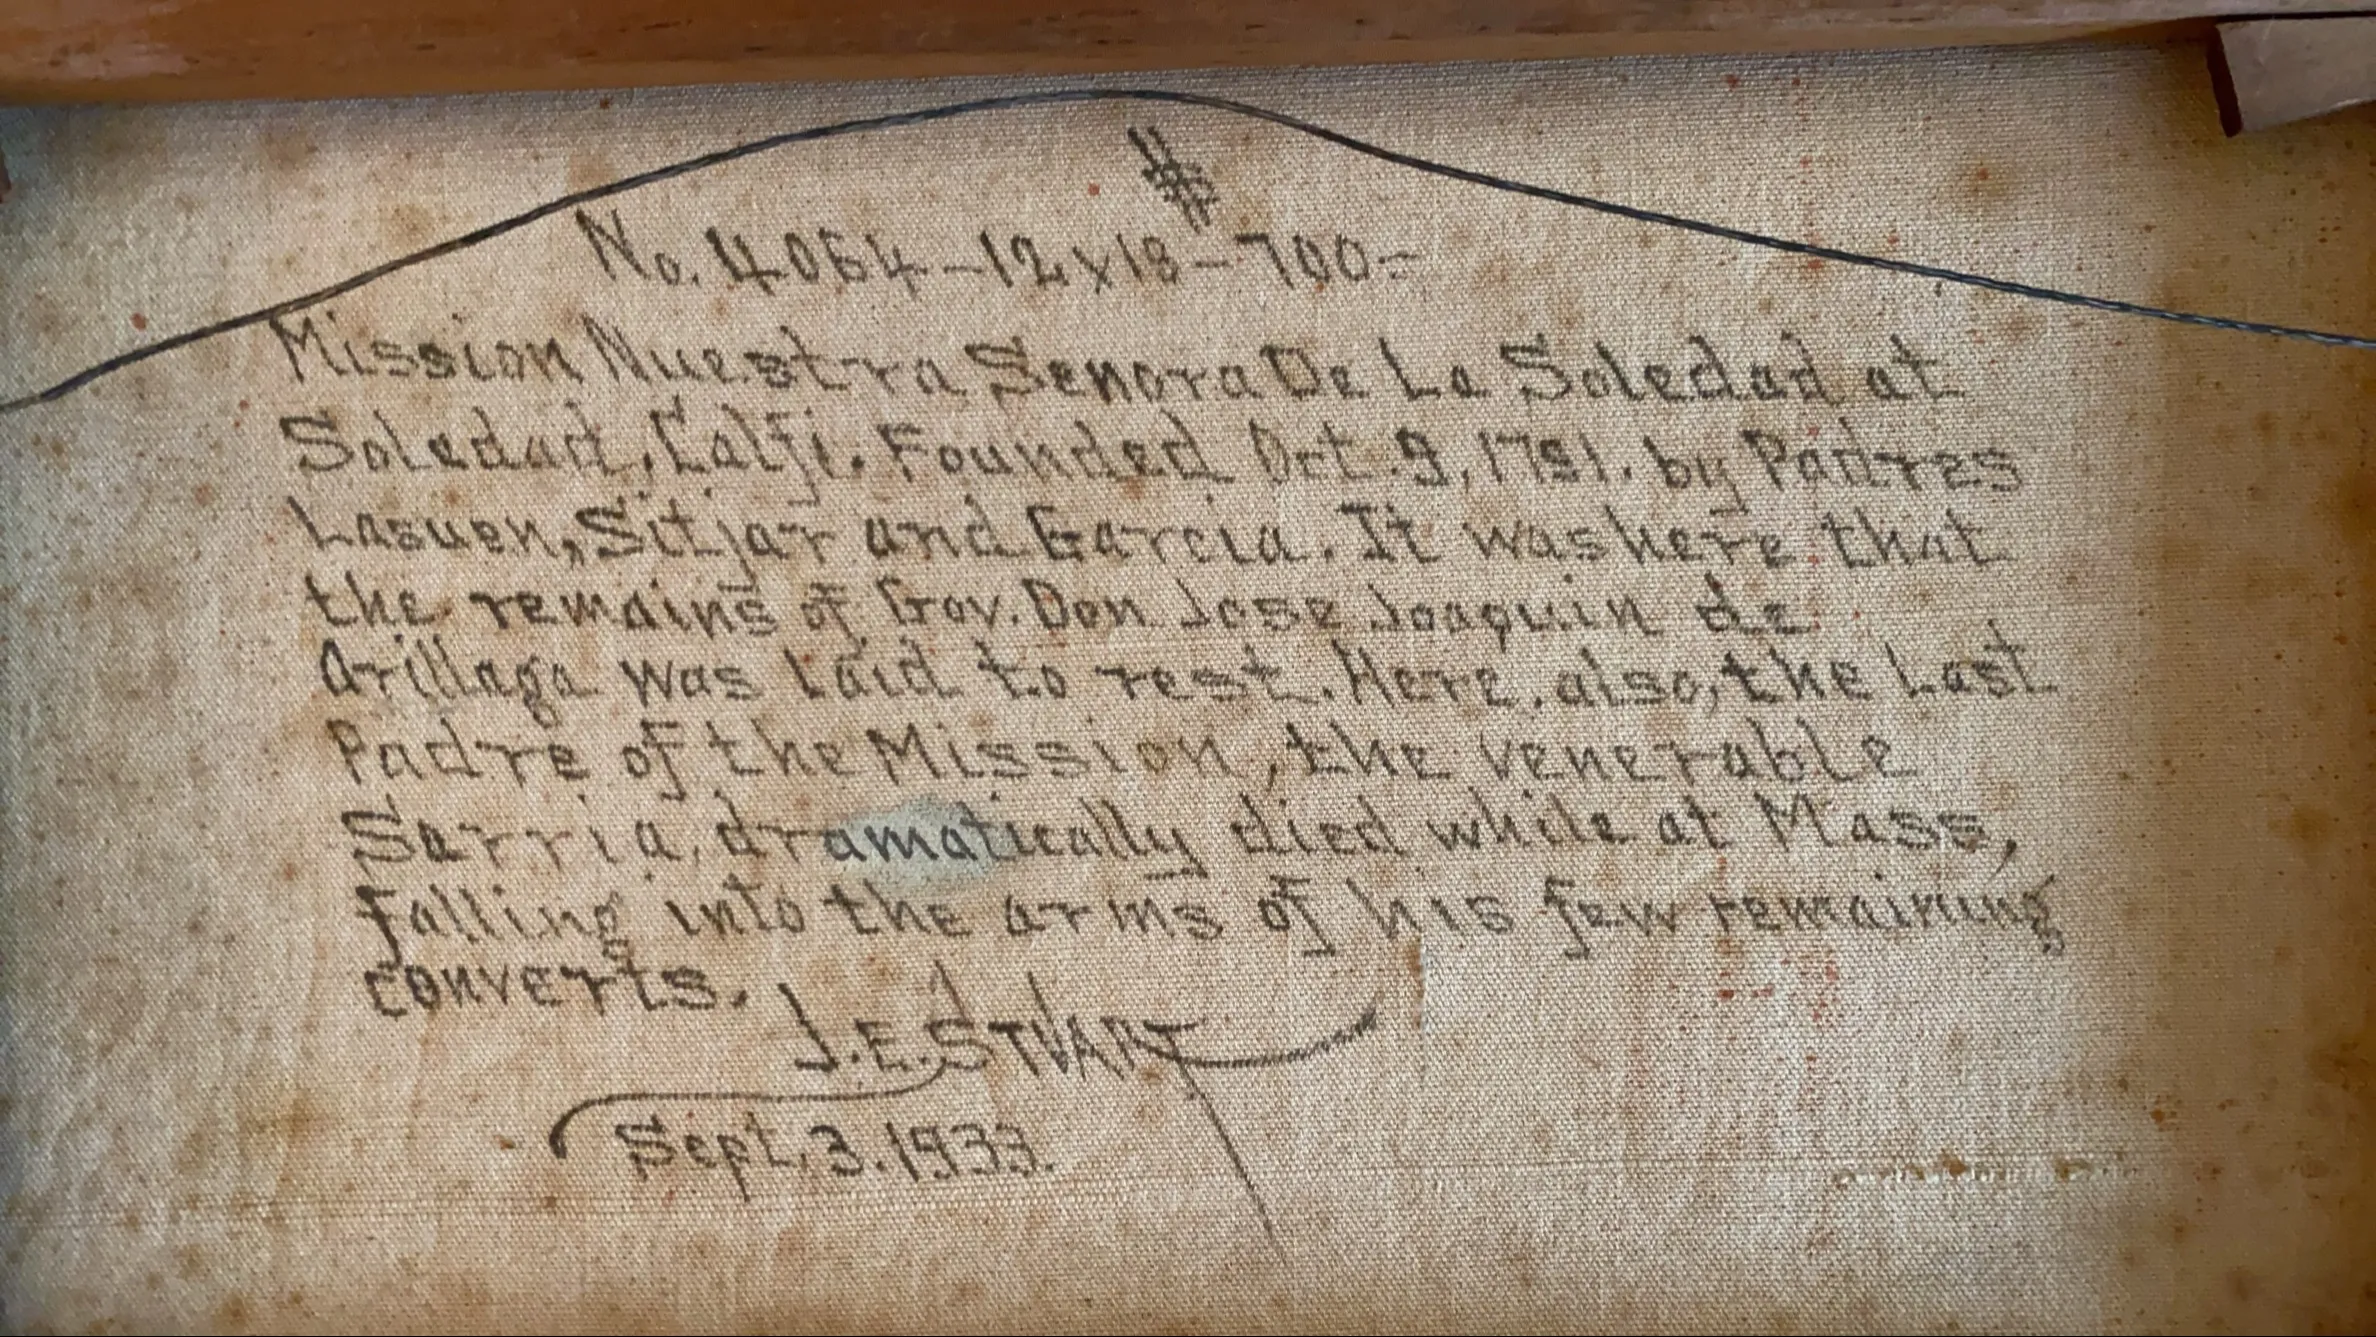 #
No. 4064-12x18-700-
Mission Nuestra Senora De La Soledad at
Soledad, Calfi. Founded Oct. 9, 1791. by Padres
Lasuen, Sitjar and Garcia. It was here that
the remains of Gov. Don Jose Joaquin de
Arillaga was laid to rest. Here, also, the Last
Padre of the Mission, the venerable
Sarria, dramatically died while at Mass,
falling into the arms of his few remaining
converts.
J.E. STUART
Sept. 3. 1933.